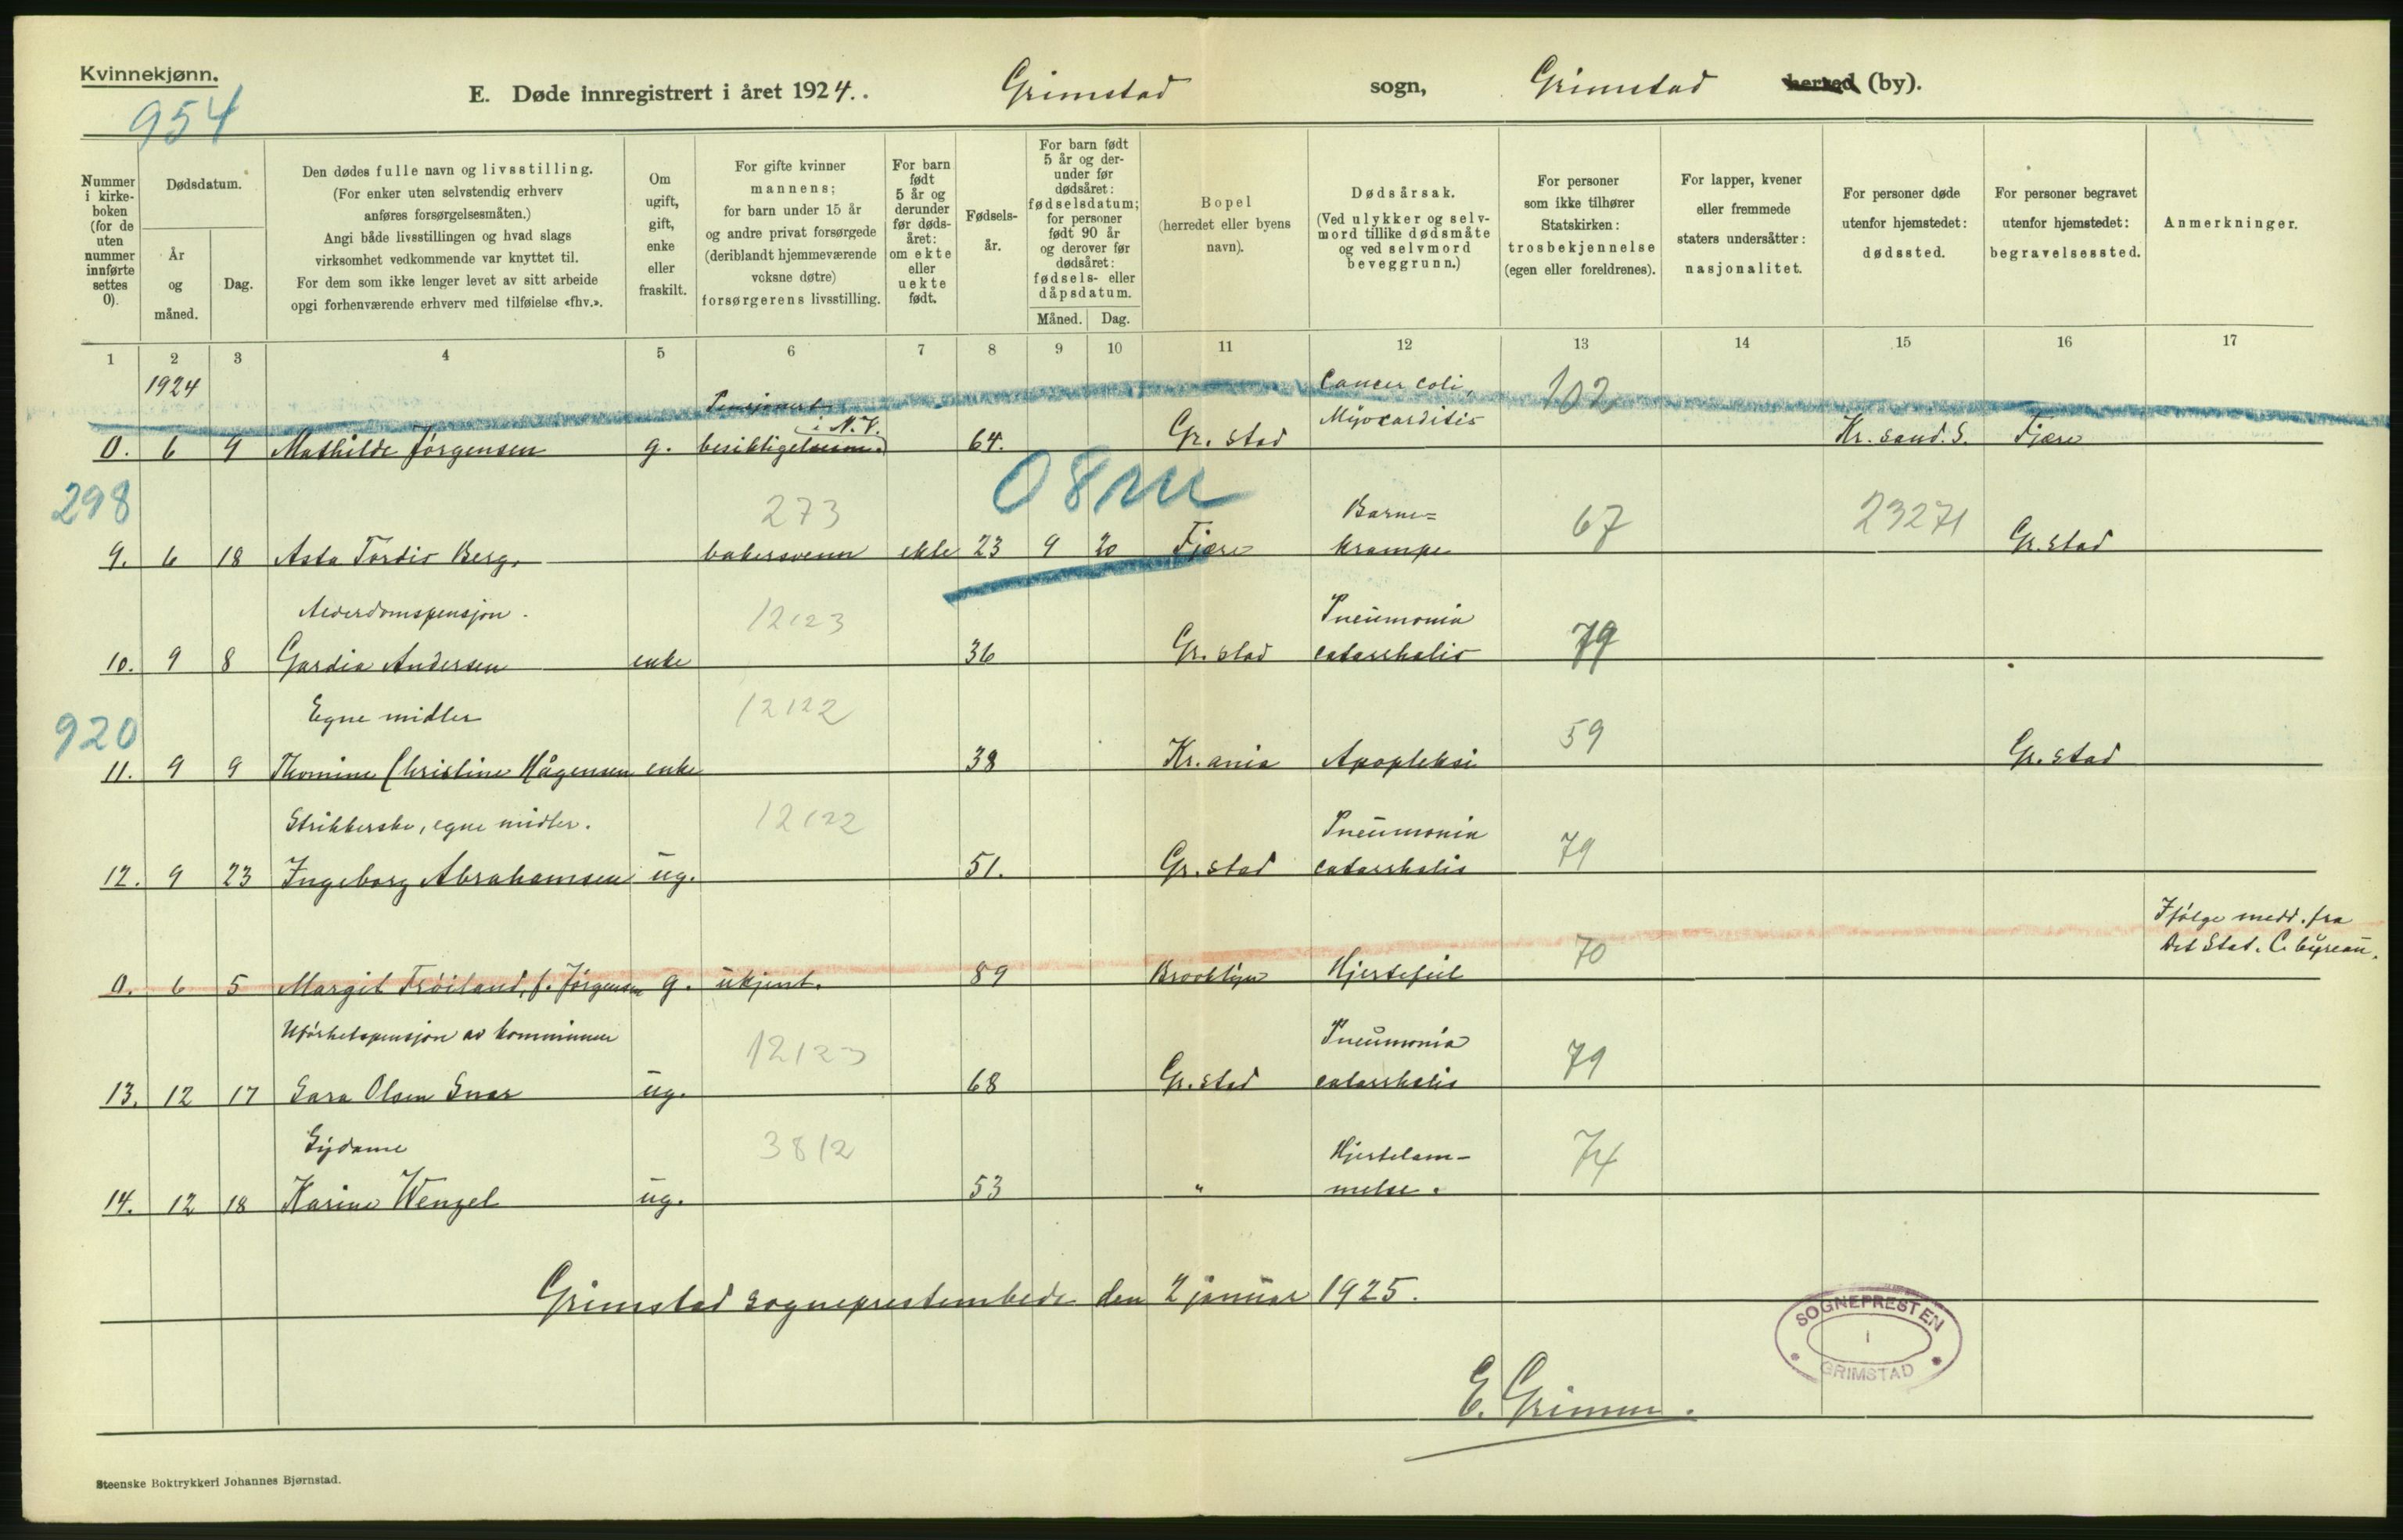 Kvinnekjønn.
954
E. Døde innregistrert i året 1924. Grimstad sogn, Grimstad herred (by).
Nummer i kirkeboken (for de uten nummer innførte settes 0).
Dødsdatum.
År og måned.
Dag.
Den dødes fulle navn og livsstilling.
(For enker uten selvstendig erhverv anføres forsørgelsesmåten.)
Angi både livsstillingen og hvad slags virksomhet vedkommende var knyttet til.
For dem som ikke lenger levet av sitt arbeide opgi forhenværende erhverv med tilføielse «fhv.».
Om ugift, gift, enke eller fraskilt.
For gifte kvinner mannens; for barn under 15 år og andre privat forsørgede (deriblandt hjemmeværende voksne døtre) forsørgerens livsstilling.
For barn født 5 år og derunder før dødsåret: om ekte eller uekte født.
Fødselsår.
For barn født 5 år og derunder før dødsåret: fødselsdatum; for personer født 90 år og derover før dødsåret: fødsels- eller dåpsdatum.
Måned. Dag.
Bopel (herredet eller byens navn).
Dødsårsak.
(Ved ulykker og selvmord tillike dødsmåte og ved selvmord beveggrunn.)
For personer som ikke tilhører Statskirken: trosbekjennelse (egen eller foreldrenes).
For lapper, kvener eller fremmede staters undersåtter: nasjonalitet.
For personer døde utenfor hjemstedet: dødssted.
For personer begravet utenfor hjemstedet: begravelsessted.
Anmerkninger.
1 2 3 4 5 6 7 8 9 10 11 12 13 14 15 16 17
1924 Cancer coli, 102
i N.V. Myocarditis
0. 6 9 Mathilde Jörgensen g. 64. Gr. stad Kr. sand. S. Fjære
298 08m
273 Barne= 67 23271
9. 6 18 Asta Tordis Berg, bakersvenn ekte 23 9 20 Fjære krampe Gr. stad
Alderdomspensjon. 12123 Pneumonia
10. 9 8 Gardia Andersen enke 36 Gr. stad catarrhalis 79
920 Egne midler 12122 59
11. 9 9 Thomine Christine Hågensen enke 38 Kr.ania Apopleksi Gr. stad
Strikkerske, egne midler. 12122 Pneumonia
12. 9 23 Ingeborg Abrahamsen ug. 51. Gr. stad catarrhalis 79
Ifølge medd. fra
70 Det Stat. C. byreau.
0. 6 5 Margit Tröiland, f. Jörgensen g. ukjent. 89 Brooklyn Hjertefeil
Uförhetspensjon av kommunen 12123 Pneumonia
13. 12 17 Sara Olsen Snar ug. 68 Gr. stad catarrhalis 79
Sydame 3812 Hjertelam- 74
14. 12 18 Karine Wenzel ug. 53 " melse.
Grimstad sogneprestembede den 2 januar 1925.
SOGNEPRESTEN
I
GRIMSTAD
E. Grimm.
Steenske Boktrykkeri Johannes Bjørnstad.